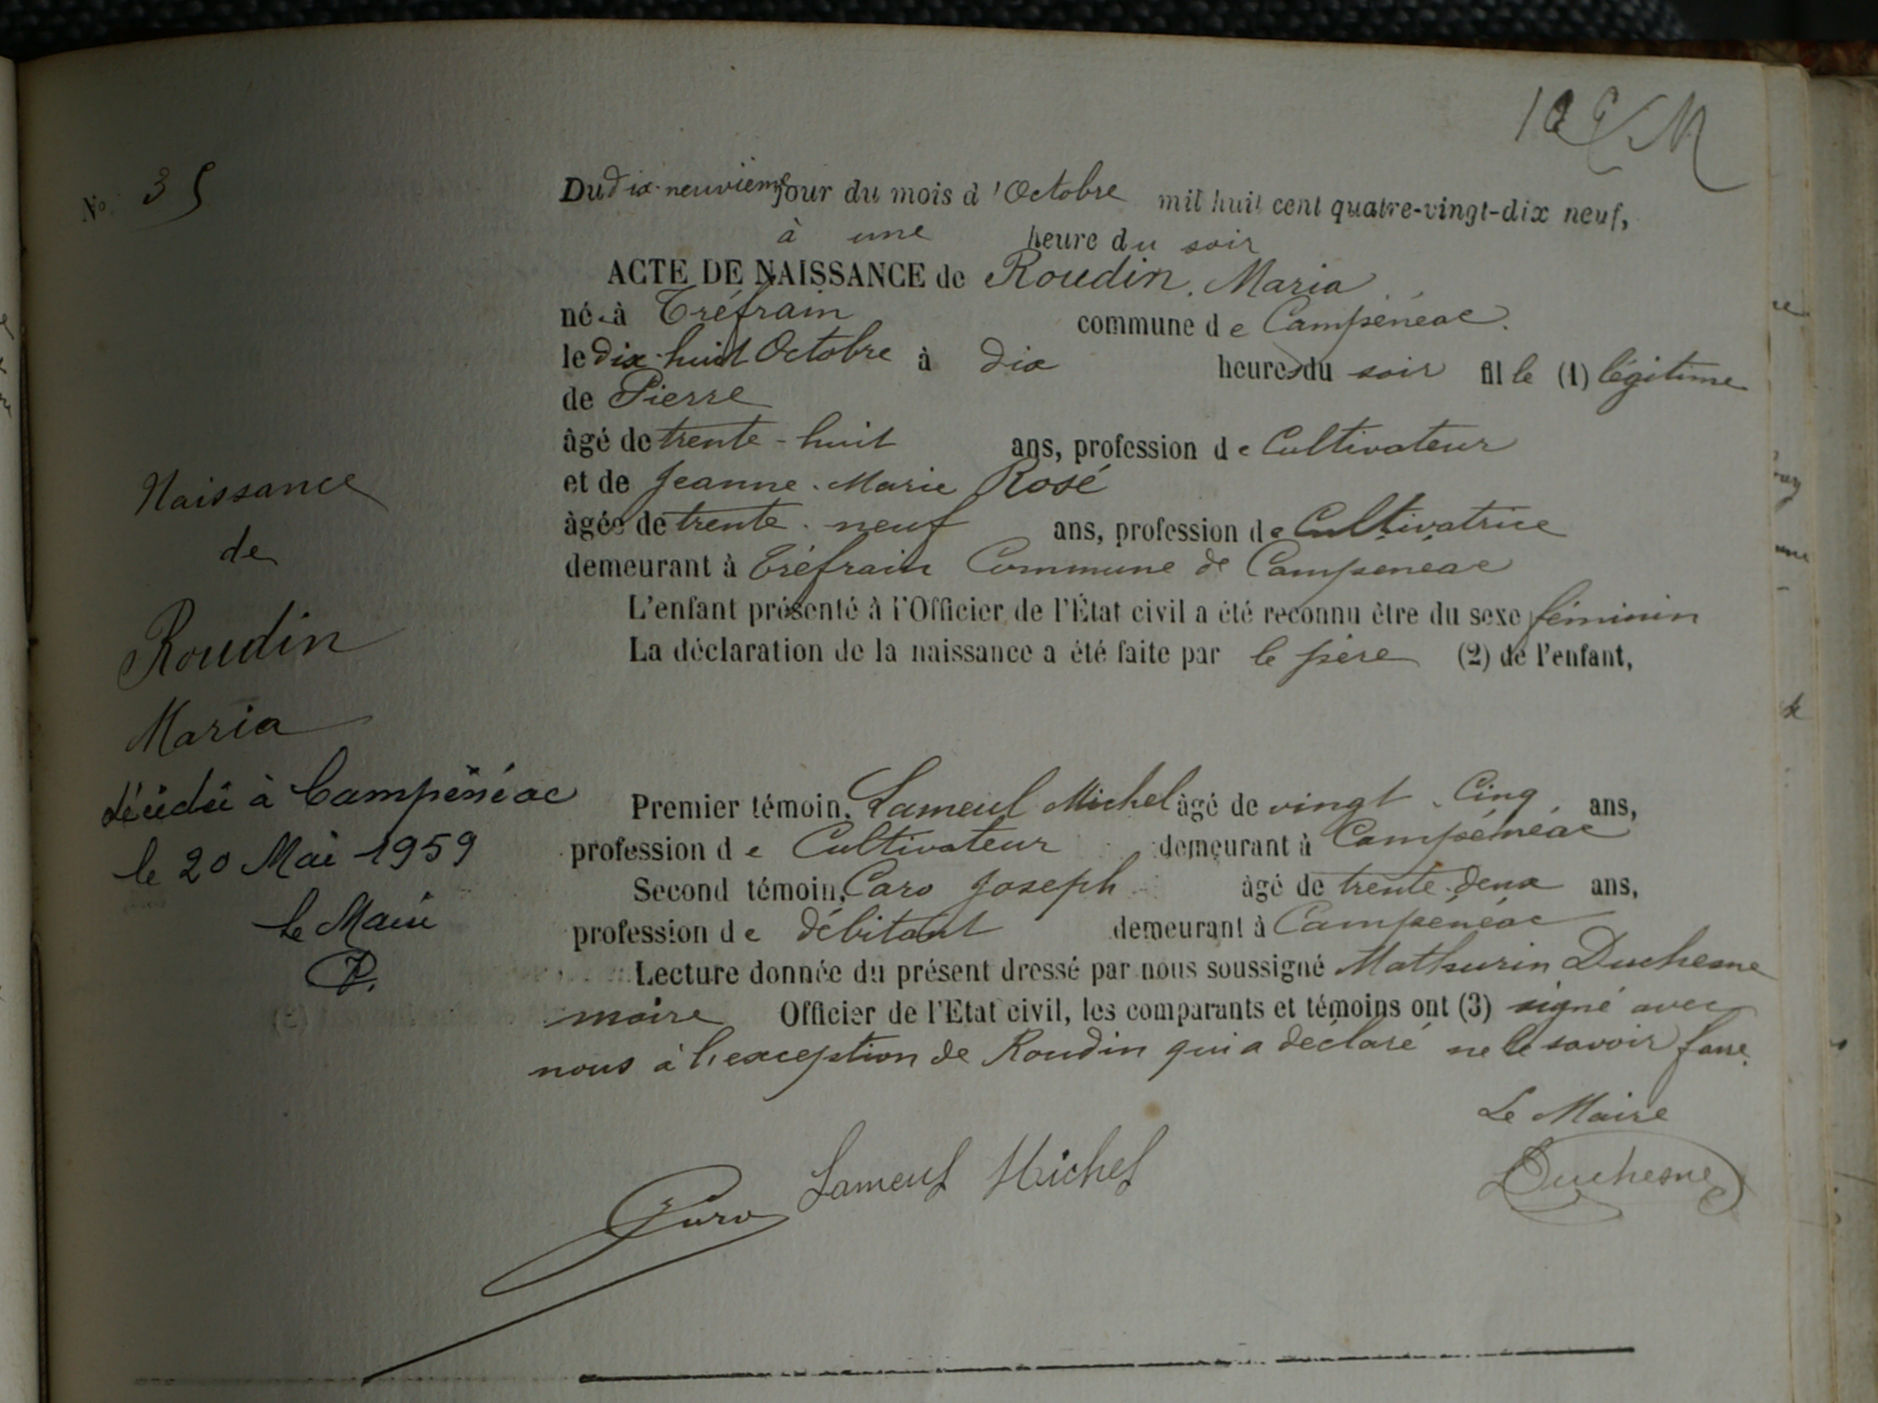 N° 35
Du dix-neuvième jour du mois d'Octobre mil huit cent quatre-vingt-dix neuf,
à une heure du soir
ACTE DE NAISSANCE de Roudin, Maria
né à Tréfrain commune de Campénéac.
le dix-huit Octobre à dix heures du soir fille (1) légitime
de Pierre
âgé de trente-huit ans, profession de Cultivateur
et de Jeanne-Marie Rosé
âgée de trente-neuf ans, profession de Cultivatrice
demeurant à Tréfrain Commune de Campénéac
L'enfant présenté à l'Officier de l'État civil a été reconnu être du sexe féminin
La déclaration de la naissance a été faite par le père (2) de l'enfant,
Premier témoin, Lameul Michel âgé de vingt-Cinq ans,
profession de Cultivateur demeurant à Campénéac
Second témoin, Caro Joseph âgé de trente-deux ans,
profession de débitant demeurant à Campénéac
Lecture donnée du présent dressé par nous soussigné Mathurin Duchesne
maire Officier de l'Etat civil, les comparants et témoins ont (3) signé avec
nous à l'exception de Roudin qui a déclaré ne le savoir faire.
Le Maire
Lameul Michel
Duchesne
Caro
Naissance
de
Roudin
Maria
décédée à Campénéac
le 20 Mai 1959
Le Maire